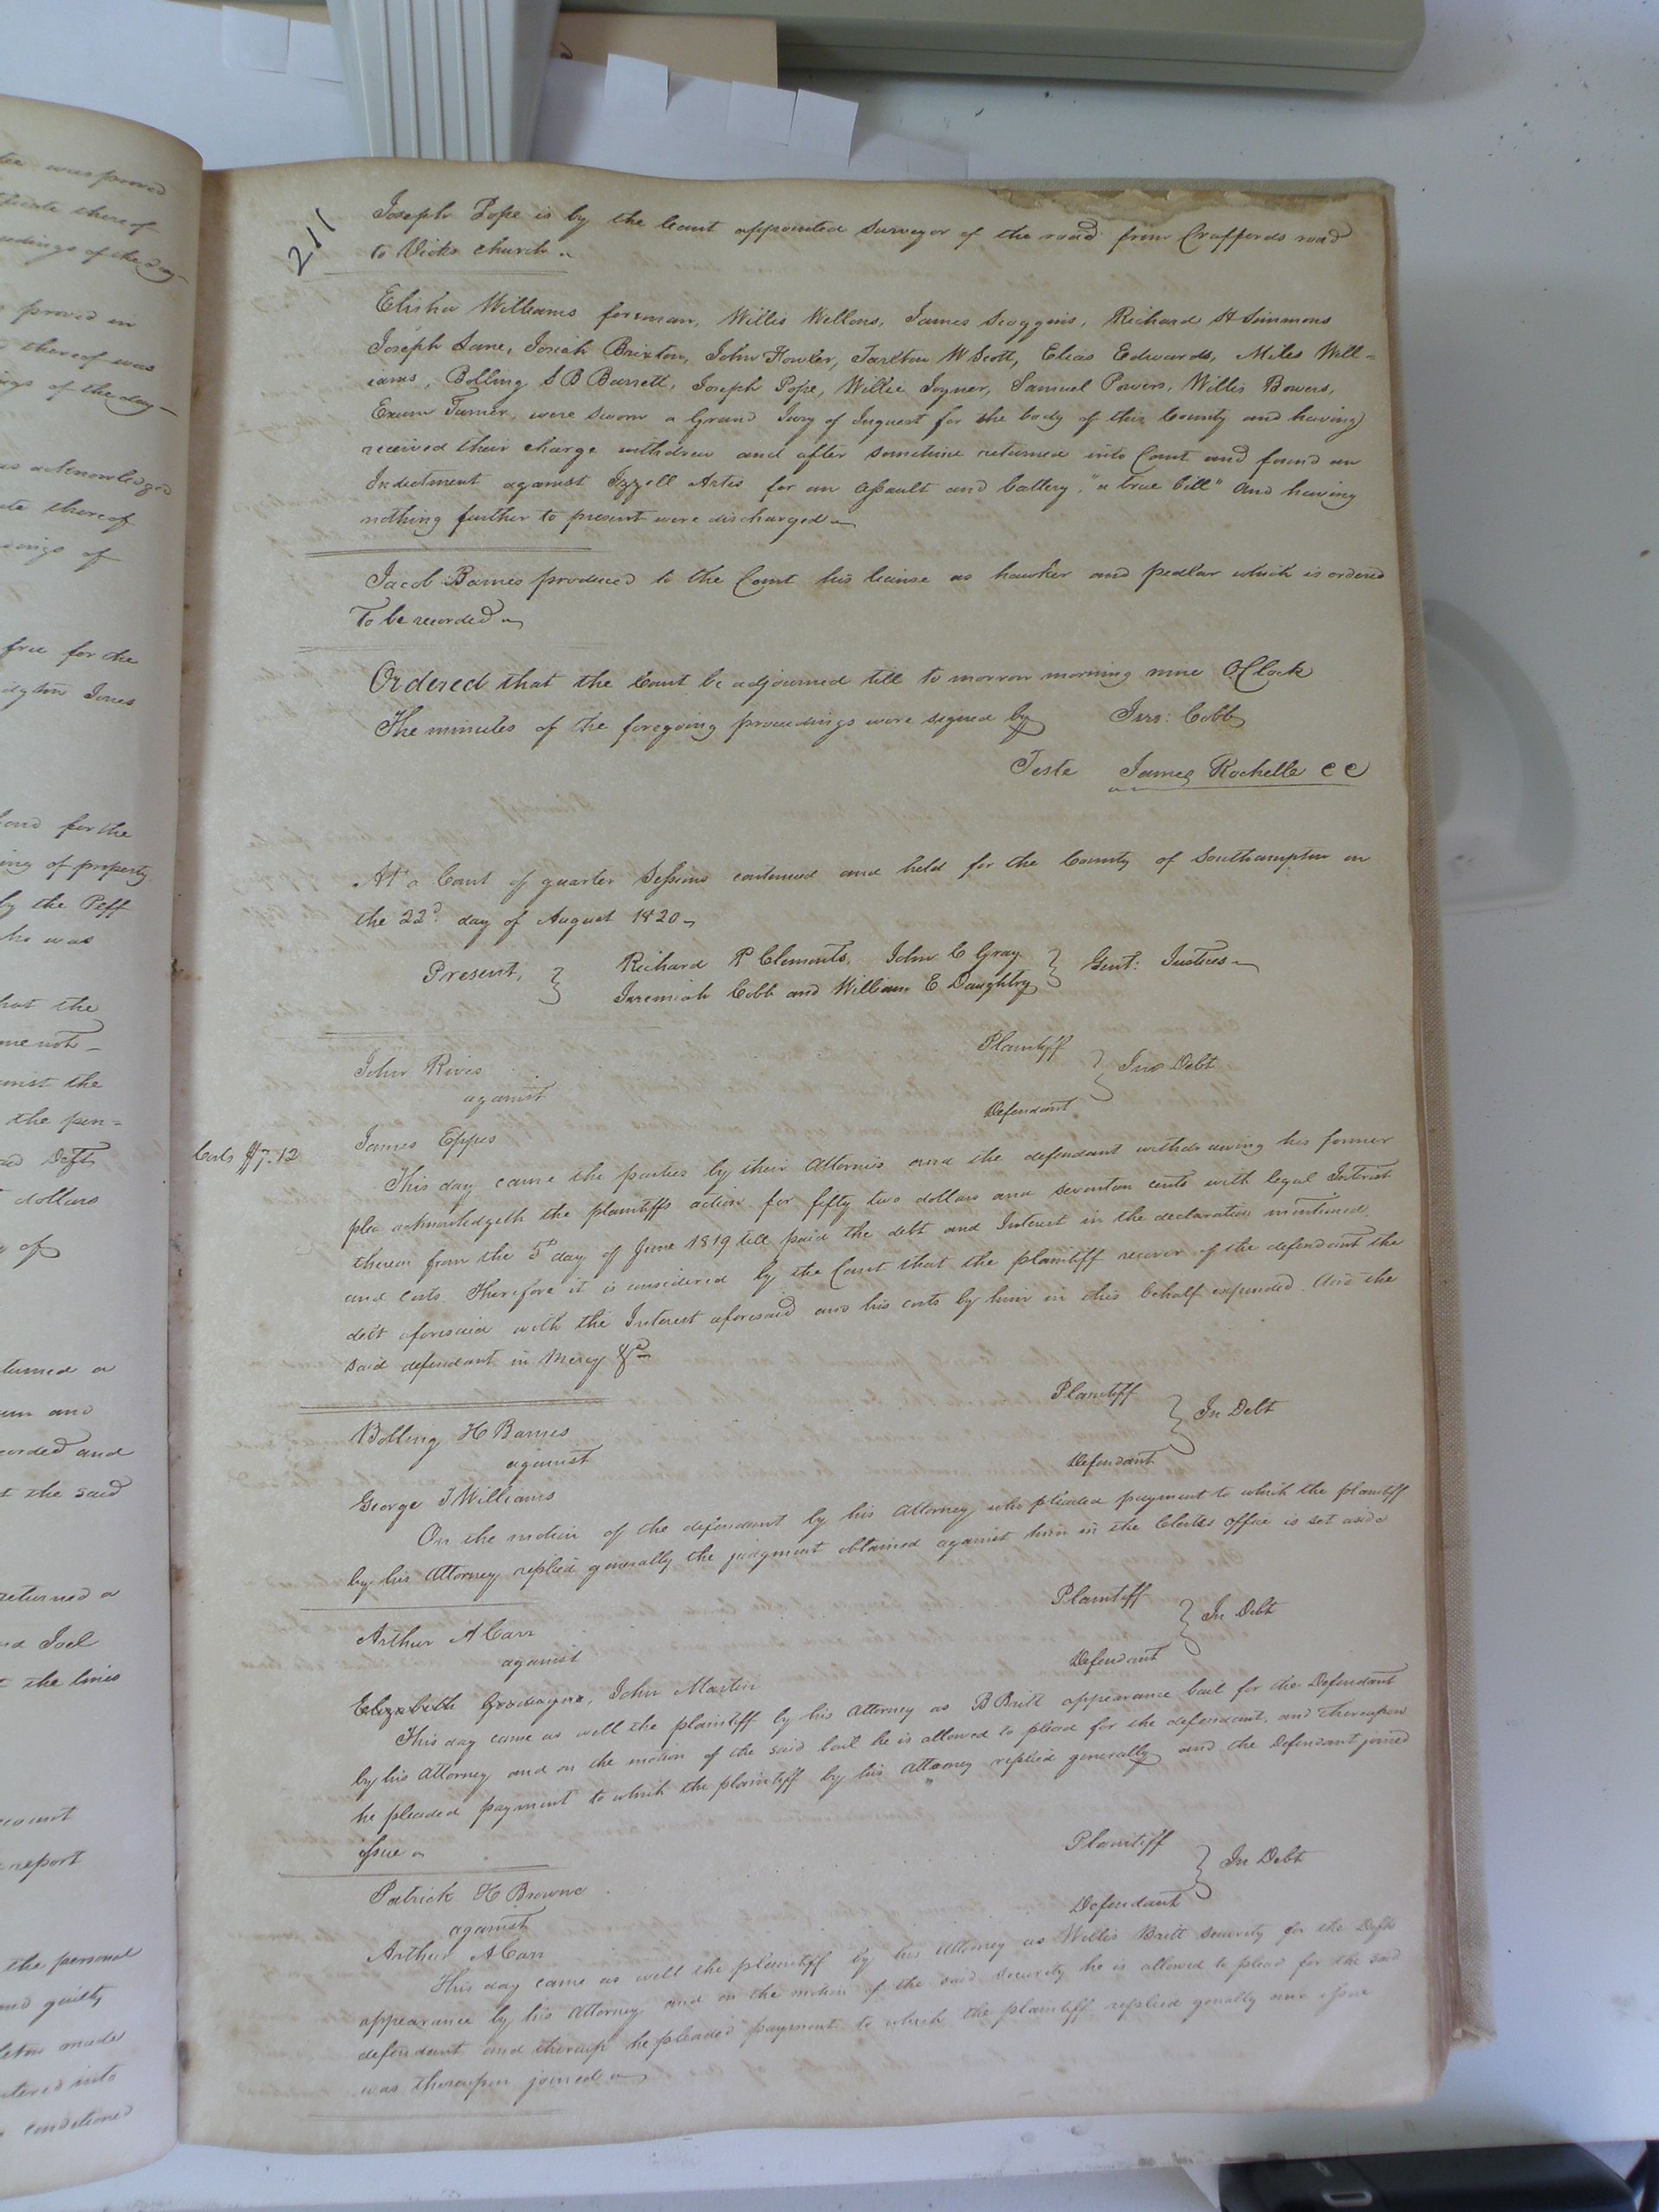 tee was proved
thereof
of the day
proved in
thereof was
of the day
as acknowledged
thereof
of
free for the
Jones
bond for the
ing of property
by the Peff
he was
that the
me not
inst the
the pen=
Deft
dollars
of
turned a
and
corded and
t the said
returned a
Joel
t the lines
report
the personal
guilty
made
entered into
conditioned
211
Joseph Pope is by the Court appointed surveyor of the road from Craffords road
to Vicks church
Elisha Williams foreman, Willis Wellons, James Scoggins, Richard H Simmons
Joseph Lane, Josiah Brixton, John Fowler, Tarlton W Scott, Elias Edwards, Miles Will=
iams, Bolling S B Barrett, Joseph Pope, Willie Joyner, Samuel Powers, Willis Bowers,
Exum Turner, were sworn a Grand Jury of Inquest for the body of this County and having
received their charge withdrew and after sometime returned into Court and found an
Indictment against Izzell Artis for an assault and battery, "a true bill" and having
nothing further to present were discharged
Jacob Barnes produced to the Court his license as hawker and pedlar which is ordered
To be recorded
Ordered that the Court be adjourned till to morrow morning nine OClock
The minutes of the foregoing proceedings were signed by Jere: Cobb
Teste James Rochelle CC
At a Court of quarter Sessions continued and held for the County of Southampton on
the 22d. day of August 1820
Present, } Richard P Clements, John C Gray } Gent: Justices
Jeremiah Cobb and William E Daughtry
John Rives Plaintiff } In Debt
against
James Eppes Defendant
Costs $7.12
This day came the parties by their Attornies and the defendant withdrawing his former
plea acknowledgeth the plaintiffs action for fifty two dollars and seventeen cents with legal Interest
thereon from the 5th day of June 1819 till paid the debt and Interest in the declaration mentioned
and costs. Therefore it is considered by the Court that the plaintiff recover of the defendant the
debt aforesaid with the Interest aforesaid and his costs by him in this behalf expended. And the
said defendant in Mercy &c
Bolling H Barnes Plaintiff } In Debt
against
George J Williams Defendant
On the motion of the defendant by his Attorney who pleaded payment to which the plaintiff
by his Attorney replied generally the judgment obtained against him in the Clerks office is set aside
Arthur A Carr Plaintiff } In Debt
against
Elizabeth John Martin Defendant
This day came as well the plaintiff by his Attorney as B Britt appearance bail for the Defendant
by his Attorney and on the motion of the said bail he is allowed to plead for the defendant, and thereupon
he pleaded payment to which the plaintiff by his Attorney replied generally and the Defendant joined
issue
Patrick H Browne Plaintiff } In Debt
against
Arthur A Carr Defendant
This day came as well the plaintiff by his Attorney as Willis Britt security for the Defts
appearance by his Attorney and on the motion of the said security he is allowed to plead for the said
defendant and thereup he pleaded payment to which the plaintiff replied genally and issue
was thereupon joined